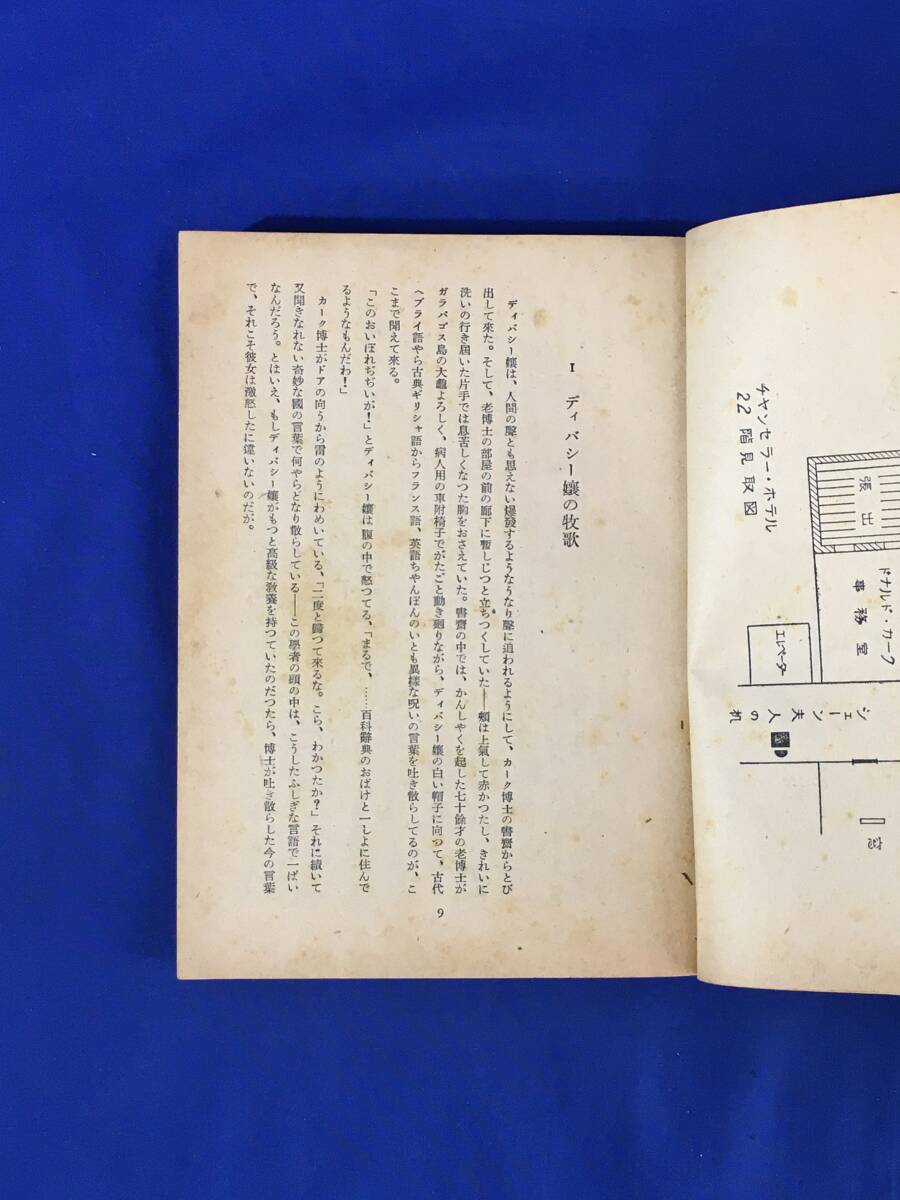 チヤンセラー・ホテル
22階見取図
張出
ドナルド・カーク
事務室
エレベーター
シェーン夫人の机
窓
I ディバシー孃の牧歌
ディバシー孃は、人間の聲とも思えない爆發するようなうなり聲に追われるようにして、カーク博士の書齋からとび
出して來た。そして、老博士の部屋の前の廊下に暫しじつと立ちつくしていた――頰は上氣して赤かつたし、きれいに
洗いの行き屆いた片手では息苦しくなつた胸をおさえていた。書齋の中では、かんしやくを起した七十餘才の老博士が
ガラパゴス島の大龜よろしく、病人用の車附椅子でがたごと動き廻りながら、ディバシー孃の白い帽子に向つて、古代
ヘブライ語やら古典ギリシャ語からフランス語、英語ちやんぽんのいとも異樣な呪いの言葉を吐き散らしてるのが、こ
こまで聞えて來る。
「このおいぼれぢぢいが！」とディバシー孃は腹の中で怒つてる、「まるで、……百科辭典のおばけと一しよに住んで
るようなもんだわ！」
カーク博士がドアの向うから雷のようにわめいている、「二度と歸つて來るな。こら、わかつたか？」それに續いて
又聞きなれない奇妙な國の言葉で何やらどなり散らしている――この學者の頭の中は、こうしたふしぎな言語で一ぱい
なんだろう。とはいえ、もしディバシー孃がもつと高級な敎養を持つていたのだつたら、博士が吐き散らした今の言葉
で、それこそ彼女は激怒したに違いないのだが。
9